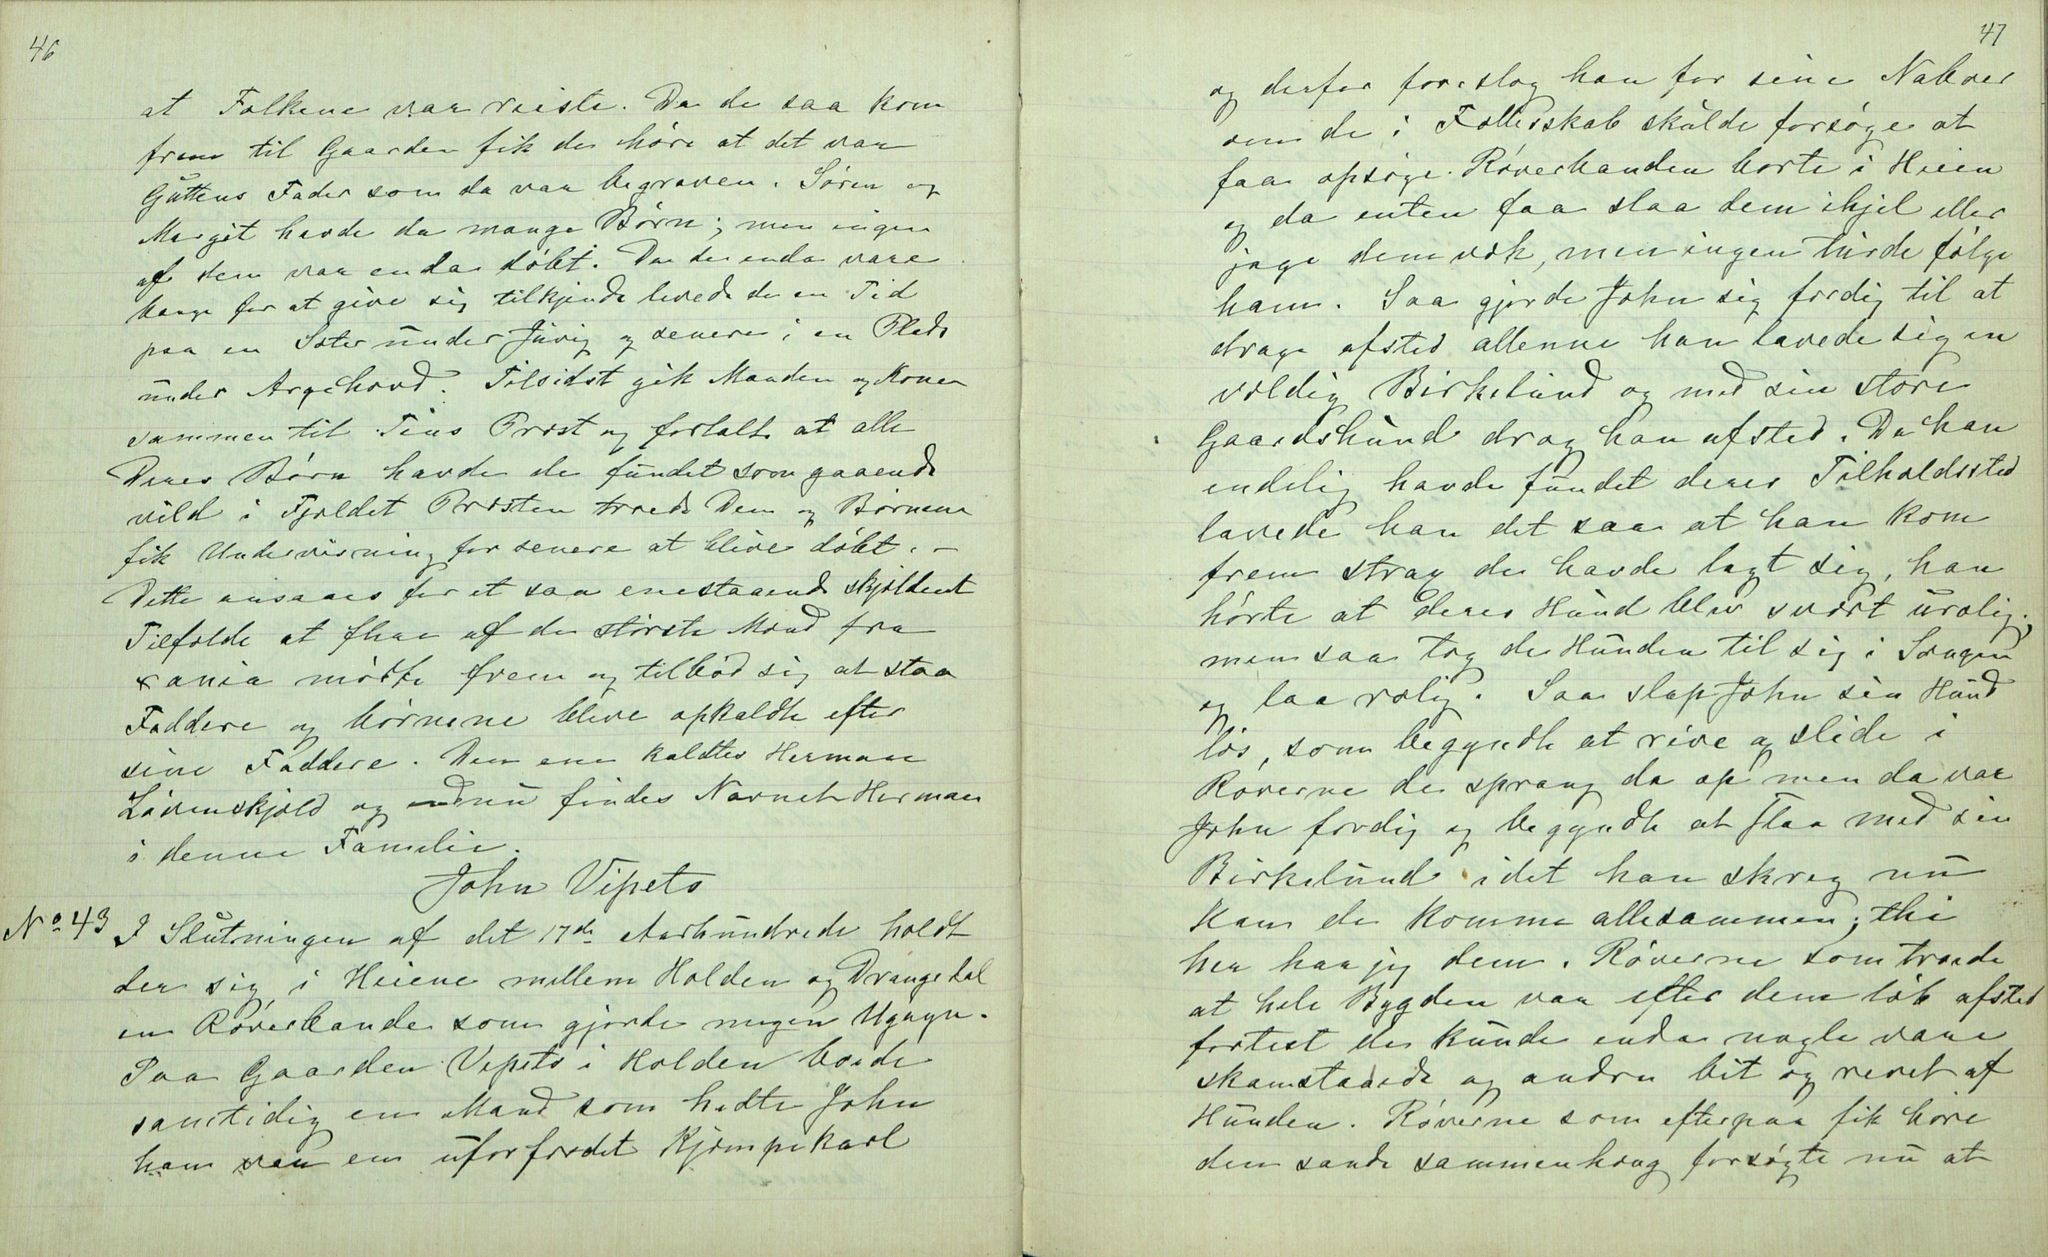 46
at Folkene var reiste. Da de saa kom
frem til Gaarden fik de høre at det var
Guttens Fader som da var begraven. Søren og
Margit havde da mange Børn; men ingen
af dem var enda døbt. Da de enda vare
bange for at give sig tilkjende levede de en Tid
paa en Sæter under Juvig og senere i en Plads
under Argehovd. Tilsidst gik Manden og Konen
sammen til Tins Præst og fortalte at alle
Deres Børn havde de fundet som gaaende
vild i Fjeldet Præsten troede Dem og Børnene
fik Undervisning for senere at blive døbt. –
Dette ansaaes for et saa enestaaende skjeldent
Tilfælde at flere af de største Mænd fra
mødte frem og tilbød sig at staa
Faddere og børnene bleve opkaldte efter
sine Faddere. Den ene kaldtes Herman
Løvenskjold og nu findes Navnet Herman
i denne Familie.
John Vipeto
No 43 I Slutningen af det 17de Aarhundrede holdt
der sig i Heiene mellem Holden og Drangedal
en Røverbande som gjorde megen Ugagn.
Paa Gaarden Vipeto i Holden boede
samtidig en Mand som hedte John
han var en uforfærdet Kjæmpekarl
47
og derfor foreslog han for sine Naboer
om de i Fællesskab skulde forsøge at
faa opsøge Røverbanden borte i Heien
og da enten faa slaa dem ihjel eller
jage dem væk, men ingen turde følge
ham. Saa gjorde John sig færdig til at
drage afsted allenne han lavede sig en
vældig Birkelund og med sin store
Gaardshund drog han afsted. Da han
endelig havde fundet deres Tilholdssted
lavede han det saa at han kom
frem strax de havde lagt sig, han
hørte at deres Hund blev svært urolig;
men saa tog de Hunden til sig i Sengen
og laa rolig. Saa slap John sin Hund
løs, som begyndte at rive og slide i
Røverne de sprang da op men da var
John færdig og begyndte at slaa med sin
Birkelund idet han skreg nu
kan de komme allesammen; thi
her har jeg dem. Røverne som troede
at hele Bygden var efter dem løb afsted
fortest de kunde enda nogle vare
skamslaaede og andre bit og revet af
Hunden. Røverne som efterpaa fik høre
den sande sammenhæng forsøgte nu at